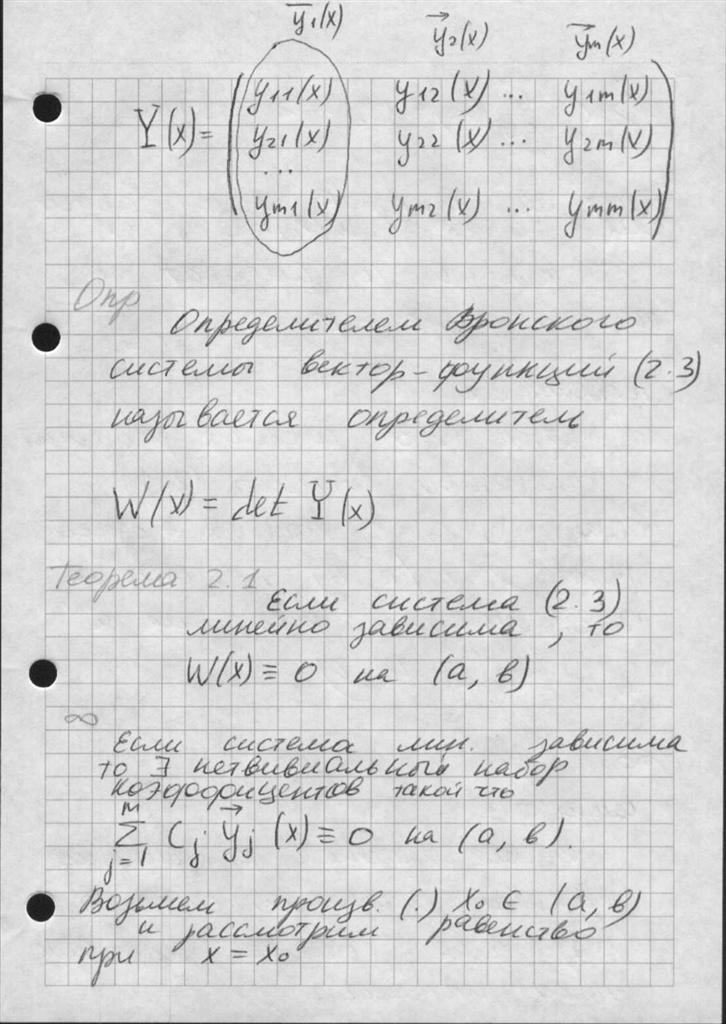 y₁(x) y₂(x) yₘ(x)
Y(x) = ( y₁₁(x) y₁₂(x) ... y₁ₘ(x)
y₂₁(x) y₂₂(x) ... y₂ₘ(x)
...
yₘ₁(x) yₘ₂(x) ... yₘₘ(x) )
Опр
Определителем Вронского
системы вектор-функций (2.3)
называется определитель
W(x) = det Y(x)
Теорема 2.1
Если система (2.3)
линейно зависима, то
W(x) ≡ 0 на (a, в)
∞
Если система лин. зависима
то ∃ нетвивиальный набор
коэффициентов такой что
∑ⱼ₌₁ᴹ Cⱼ y⃗ⱼ(x) ≡ 0 на (a, в).
Возьмем произв. (.) x₀ ∈ (a, в)
и рассмотрим равенство
при x = x₀